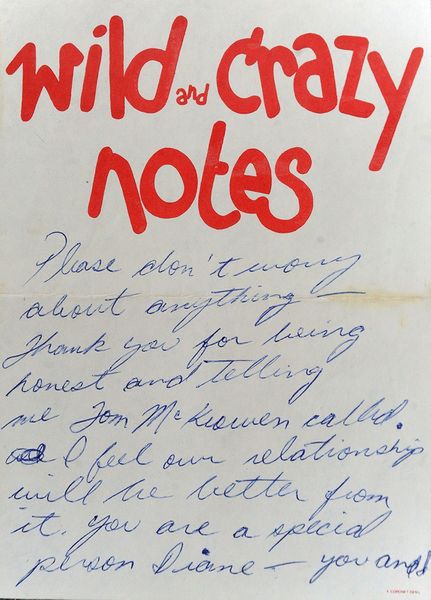 wild and crazy
notes
Please don't worry
about anything —
Thank you for being
honest and telling
me Tom McKeowen called.
I feel our relationship
will be better from
it. You are a special
person Diane — you and